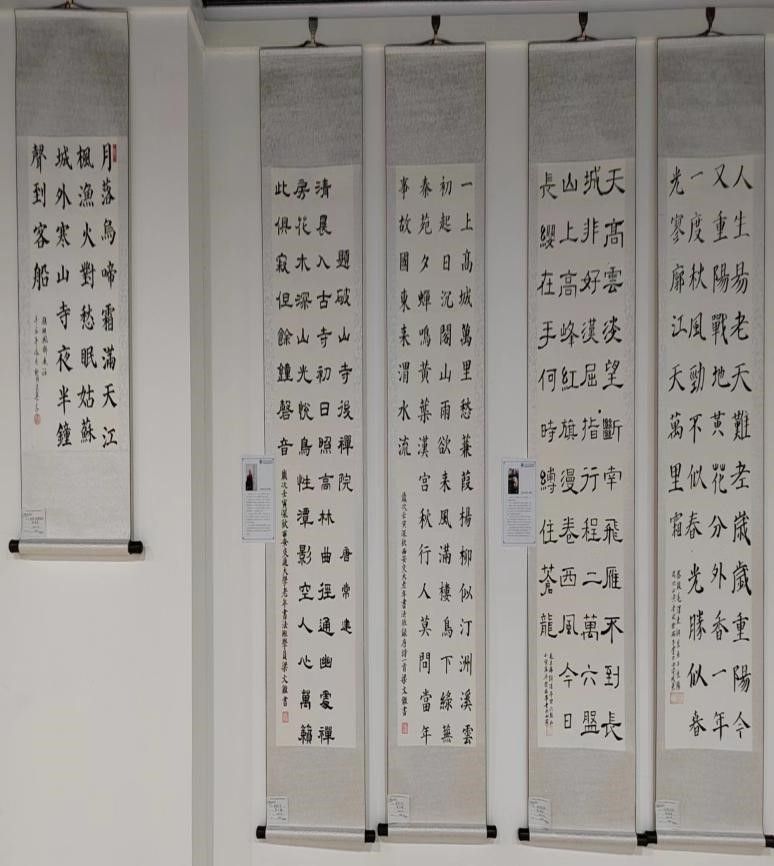 月落烏啼霜滿天江
楓漁火對愁眠姑蘇
城外寒山寺夜半鐘
聲到客船
題破山寺後禪院 唐 常建
清晨入古寺初日照高林曲徑通幽處禪
房花木深山光悅鳥性潭影空人心萬籟
此俱寂但餘鐘磬音 歲次壬寅深秋西安交通大學老年書法班學員梁文雅書
一上高城萬里愁蒹葭揚柳似汀洲溪雲
初起日沉閣山雨欲来風滿樓鳥下綠蕪
秦苑夕蟬鳴黃葉漢宮秋行人莫問當年
事故國東来渭水流 歲次壬寅深秋西安交大老年書法班錄唐詩一首梁文雅書
天高雲淡望斷南飛雁不到長
城非好漢屈指行程二萬六盤
山上高峰紅旗漫卷西風今日
長纓在手何時縛住蒼龍
人生易老天難老歲歲重陽今
又重陽戰地黃花分外香一年
一度秋風勁不似春光勝似春
光寥廓江天萬里霜